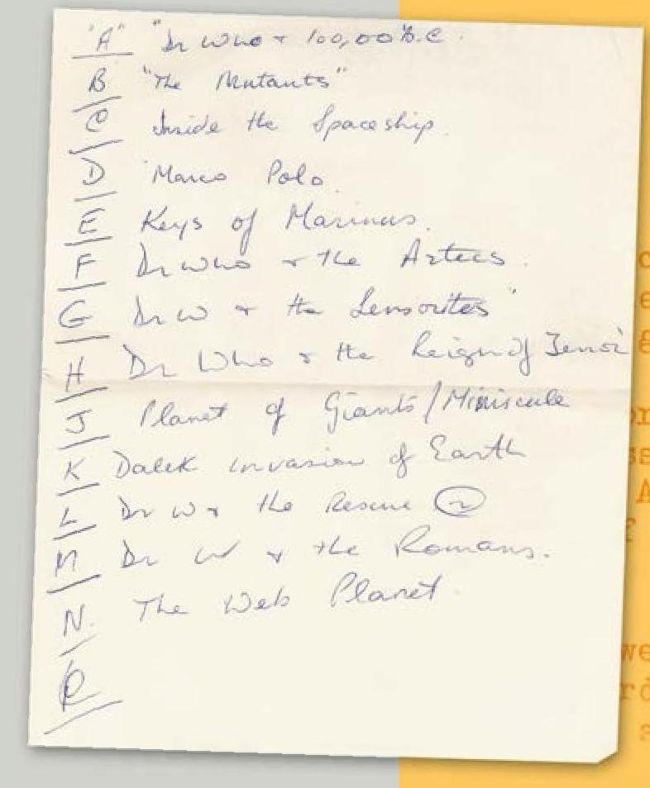 "A" "Dr Who + 100,000 B.C.
B "The Mutants"
C Inside the Spaceship.
D Marco Polo.
E Keys of Marinus.
F Dr Who + the Aztecs.
G Dr W + the Sensorites"
H Dr Who + the Reign of Terror
J Planet of Giants/Miniscule
K Dalek invasion of Earth
L Dr W + the Rescue 2
M Dr W + the Romans.
N. The Web Planet.